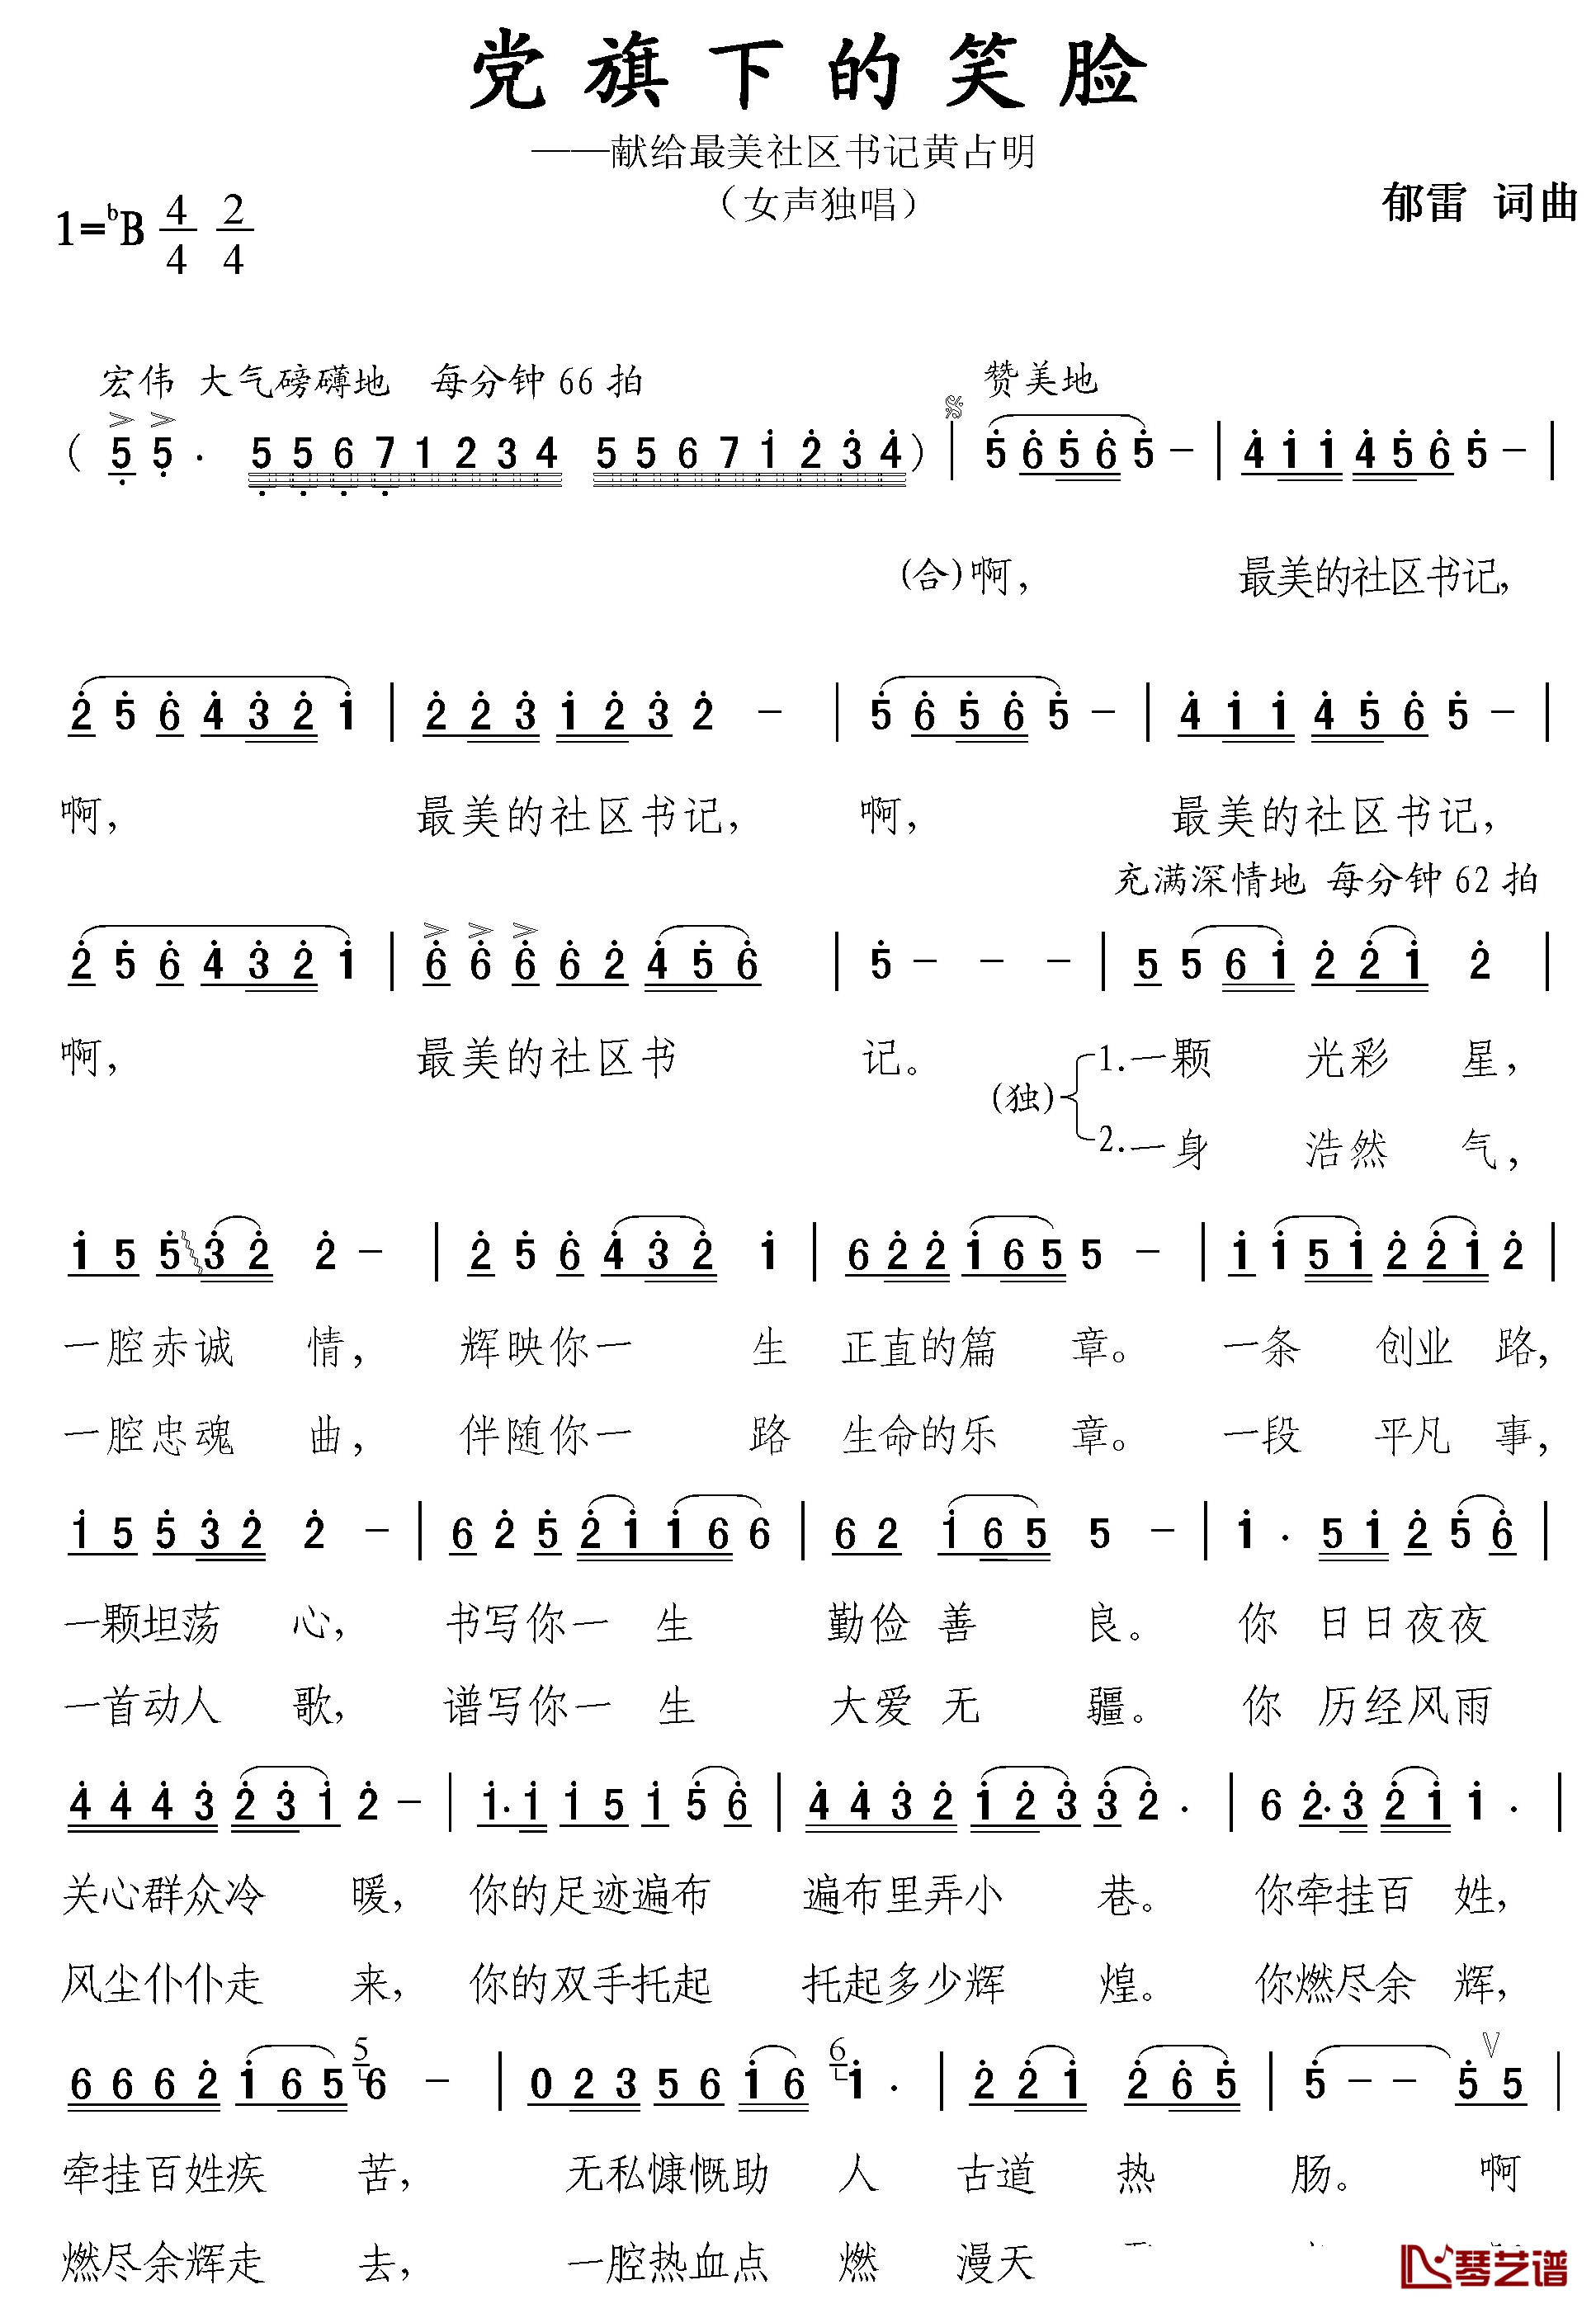 党旗下的笑脸
——献给最美社区书记黄占明
（女声独唱）
郁雷 词曲
1=bB 4/4 2/4
宏伟 大气磅礴地 每分钟66拍 赞美地
( 5 5 · 5 5 6 7 1 2 3 4 5 5 6 7 1 2 3 4 ) | 5 6 5 6 5 - | 4 1 1 4 5 6 5 - |
(合)啊， 最美的社区书记，
2 5 6 4 3 2 1 | 2 2 3 1 2 3 2 - | 5 6 5 6 5 - | 4 1 1 4 5 6 5 - |
啊， 最美的社区书记， 啊， 最美的社区书记，
充满深情地 每分钟62拍
2 5 6 4 3 2 1 | 6 6 6 6 2 4 5 6 | 5 - - - | 5 5 6 1 2 2 1 2 |
啊， 最美的社区书 记。 (独) 1.一颗 光彩 星，
2.一身 浩然 气，
1 5 5 3 2 2 - | 2 5 6 4 3 2 1 | 6 2 2 1 6 5 5 - | 1 1 5 1 2 2 1 2 |
一腔赤诚 情， 辉映你一 生 正直的篇 章。 一条 创业 路，
一腔忠魂 曲， 伴随你一 路 生命的乐 章。 一段 平凡 事，
1 5 5 3 2 2 - | 6 2 5 2 1 1 6 6 | 6 2 1 6 5 5 - | 1 · 5 1 2 5 6 |
一颗坦荡 心， 书写你一 生 勤俭 善 良。 你 日日夜夜
一首动人 歌， 谱写你一 生 大爱 无 疆。 你 历经风雨
4 4 4 3 2 3 1 2 - | 1· 1 1 5 1 5 6 | 4 4 3 2 1 2 3 3 2 · | 6 2· 3 2 1 1 · |
关心群众冷 暖， 你的足迹遍布 遍布里弄小 巷。 你牵挂百 姓，
风尘仆仆走 来， 你的双手托起 托起多少辉 煌。 你燃尽余 辉，
6 6 6 2 1 6 5 5 6 - | 0 2 3 5 6 1 6 6 1 · | 2 2 1 2 6 5 | 5 - - 5 5 |
牵挂百姓疾 苦， 无私慷慨助 人 古道 热 肠。 啊
燃尽余辉走 去， 一腔热血点 燃 漫天
琴艺谱